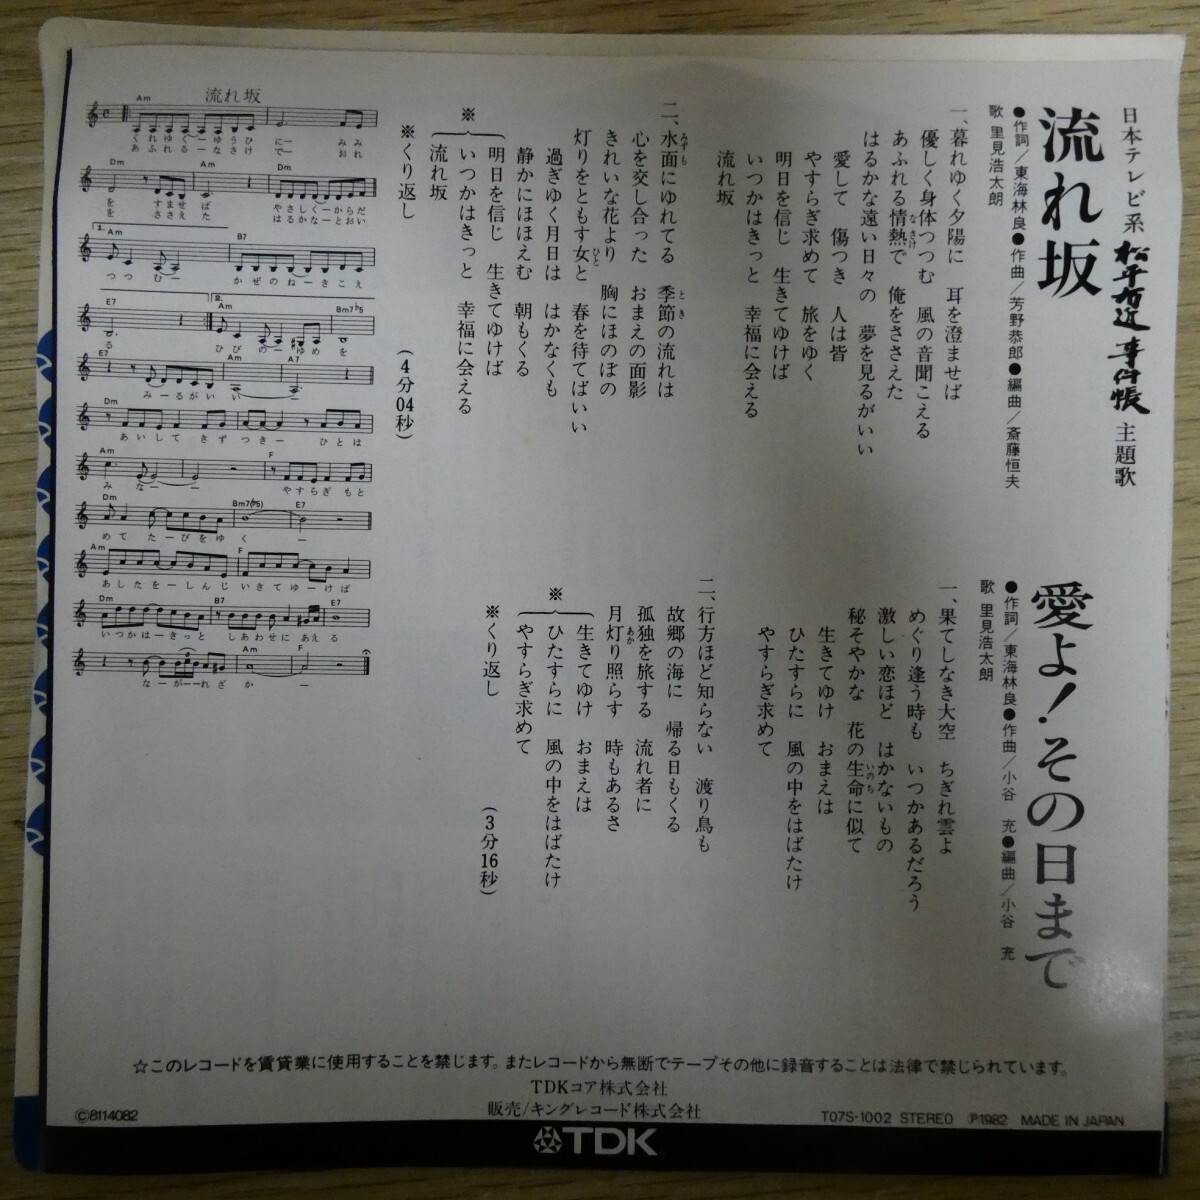 日本テレビ系 松平右近事件帳 主題歌
流れ坂
●作詞／東海林良●作曲／芳野恭郎●編曲／斎藤恒夫
歌 里見浩太朗
一、暮れゆく夕陽に 耳を澄ませば
優しく身体つつむ 風の音聞こえる
あふれる情熱で 俺をささえた
はるかな遠い日々の 夢を見るがいい
愛して 傷つき 人は皆
やすらぎ求めて 旅をゆく
明日を信じ 生きてゆけば
いつかはきっと 幸福に会える
流れ坂
二、水面にゆれてる 季節の流れは
心を交し合った おまえの面影
きれいな花より 胸にほのぼの
灯りをともす女と 春を待てばいい
過ぎゆく月日は はかなくも
静かにほほえむ 朝もくる
※明日を信じ 生きてゆけば
いつかはきっと 幸福に会える
流れ坂
※くり返し
(4分04秒)
愛よ！その日まで
●作詞／東海林良●作曲／小谷 充●編曲／小谷 充
歌 里見浩太朗
一、果てしなき大空 ちぎれ雲よ
めぐり逢う時も いつかあるだろう
激しい恋ほど はかないもの
秘そやかな 花の生命に似て
生きてゆけ おまえは
ひたすらに 風の中をはばたけ
やすらぎ求めて
二、行方ほど知らない 渡り鳥も
故郷の海に 帰る日もくる
孤独を旅する 流れ者に
月灯り照らす 時もあるさ
※生きてゆけ おまえは
ひたすらに 風の中をはばたけ
やすらぎ求めて
※くり返し
(3分16秒)
流れ坂
Am
くれゆくーゆうひ にー みみ
あふれるーなさけ でー おれ
Dm Am Dm
を すませば やさしくーからだ
を ささえた はるかなーとおい
1. Am B7
つつむー かぜのねーきこえ
E7 2. Am Bm7♭5
る ひびのーゆめを
E7 Am A7
みーるがいいー
Dm
あいして きずつきー ひとは
Am F
みなーー やすらぎ もと
Dm Bm7(♭5) E7
めて たーびをゆく ー
Am F
あしたをーしんじいきてゆーけば
Dm B7 E7
いつかはーきっと しあわせに あえる
Am F
なーがーーれざ か ー
☆このレコードを賃貸業に使用することを禁じます。またレコードから無断でテープその他に録音することは法律で禁じられています。
TDKコア株式会社
販売/キングレコード株式会社
Ⓒ8114082
T07S-1002 STEREO Ⓟ1982 MADE IN JAPAN
TDK